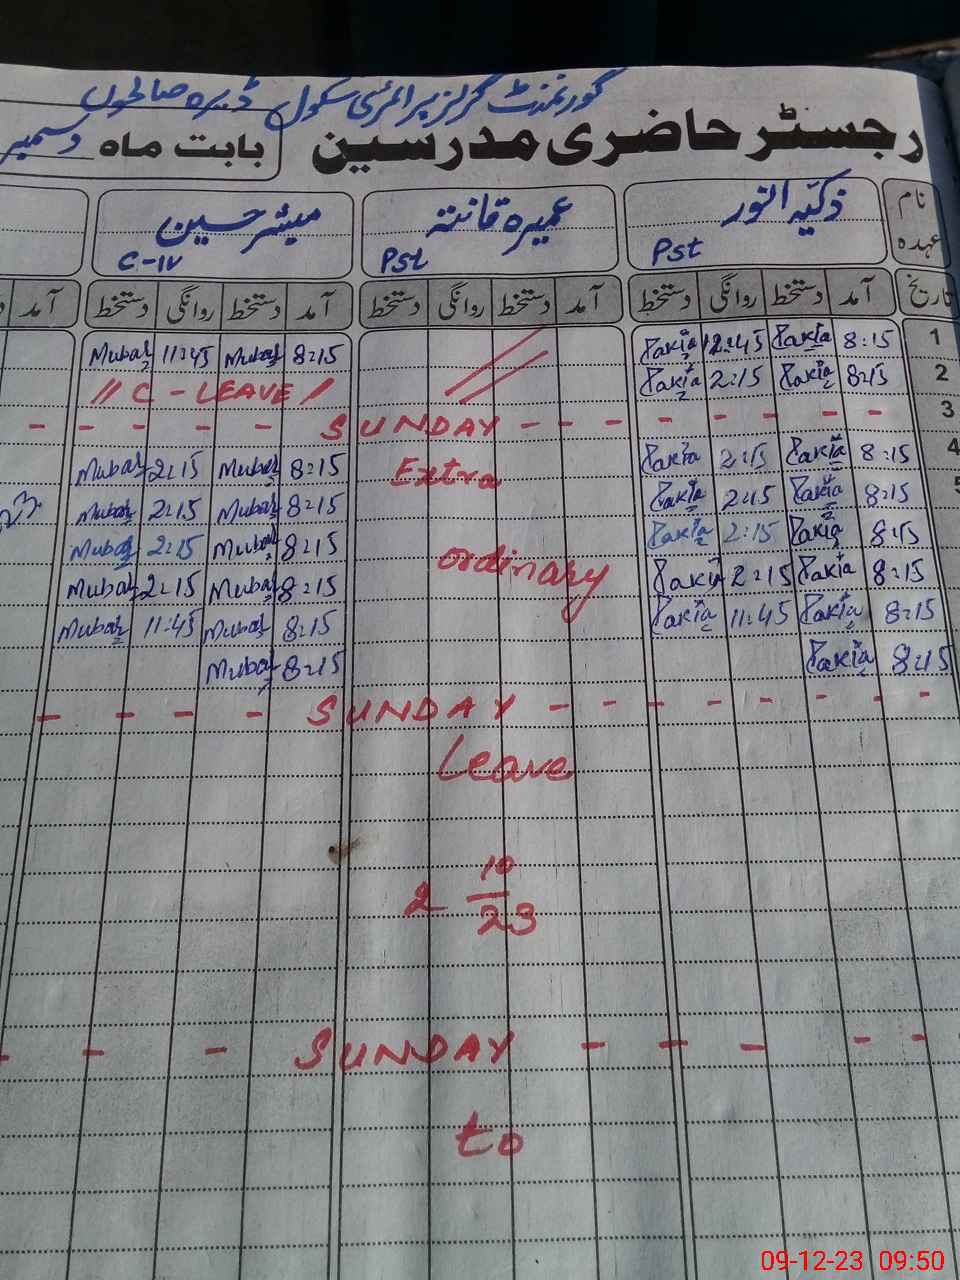 گورنمنٹ گرلز پرائمری سکول ڈیرہ صالحوں
رجسٹر حاضری مدرسین بابت ماہ دسمبر
نام ذکیہ انور عمیرہ قانتہ مبشر حسین
عہدہ Pst Pst C-IV
تاریخ آمد دستخط روانگی دستخط آمد دستخط روانگی دستخط آمد دستخط روانگی دستخط آمد
Mubas 11:45 Mubas 8:15 Zakia 12:45 Zakia 8:15 1
// C - LEAVE / // Zakia 2:15 Zakia 8:15 2
- - - - - SUNDAY - - - - - - - - 3
Mubas 2:15 Mubas 8:15 Extra Zakia 2:15 Zakia 8:15 4
Mubas 2:15 Mubas 8:15 Zakia 2:15 Zakia 8:15 5
Mubas 2:15 Mubas 8:15 ordinary Zakia 2:15 Zakia 8:15
Mubas 2:15 Mubas 8:15 Zakia 2:15 Zakia 8:15
Mubas 11:45 Mubas 8:15 Zakia 11:45 Zakia 8:15
Mubas 8:15 Zakia 8:15
- - - - SUNDAY - - - - - - -
Leave
2 10/23
- - - SUNDAY - - - - -
to
09-12-23 09:50